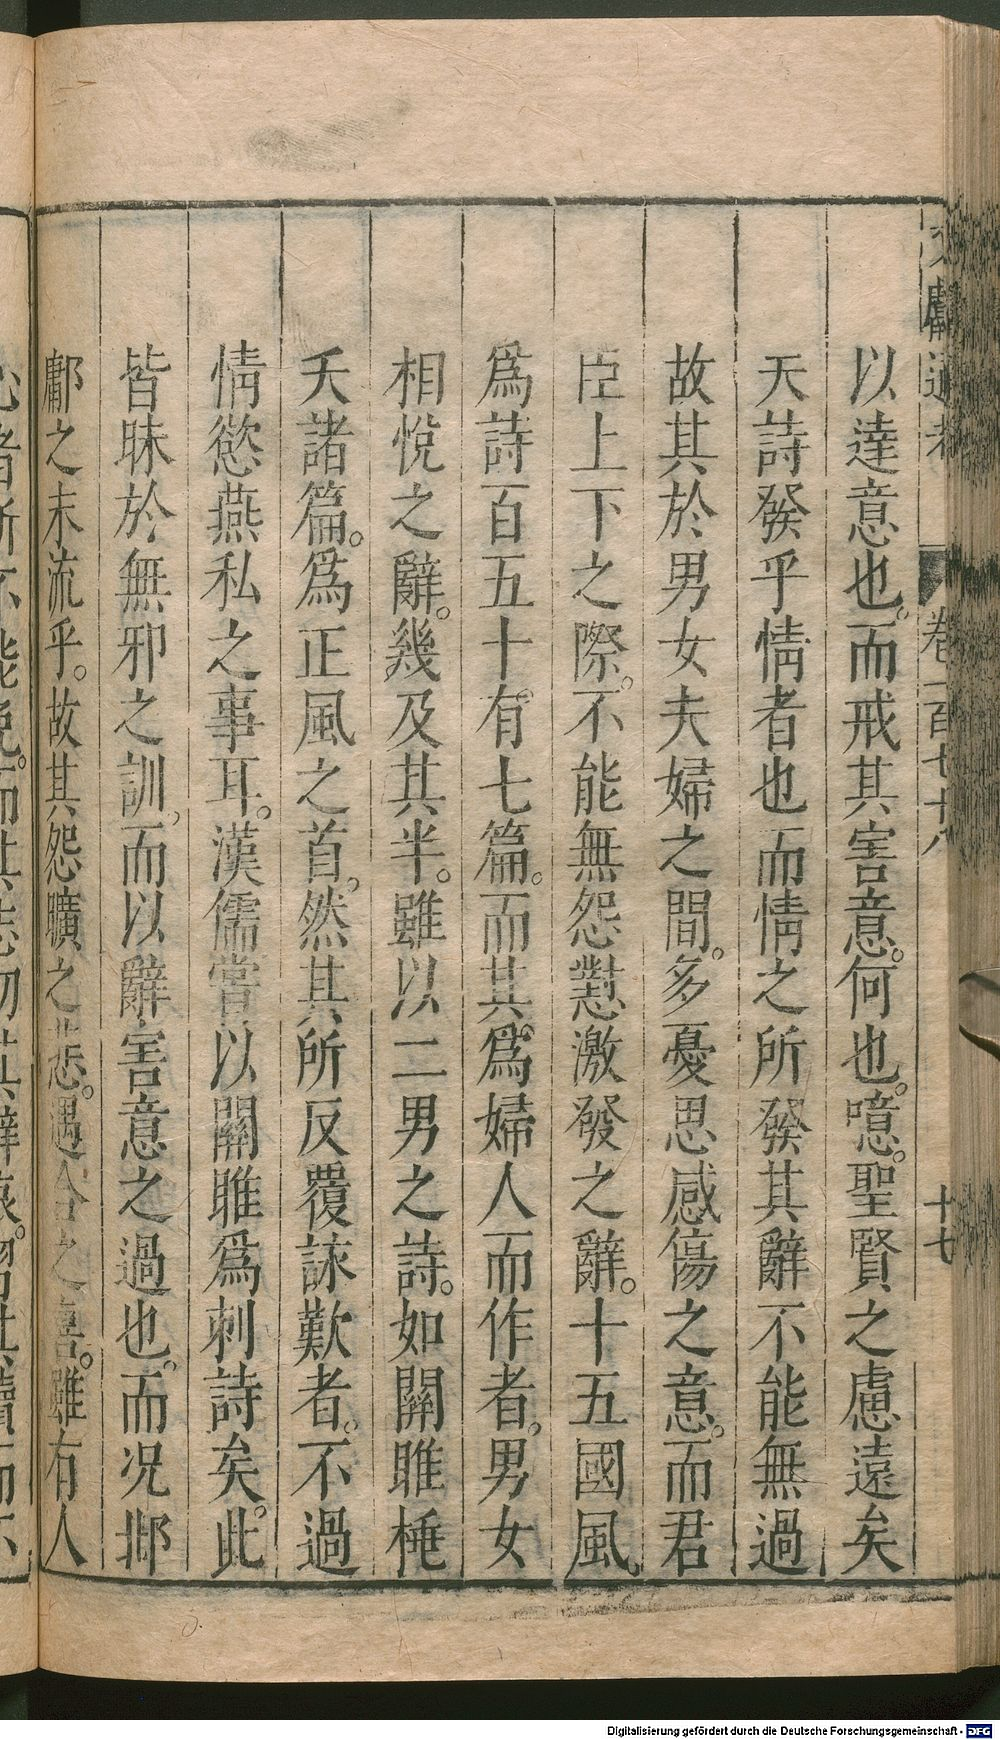 文獻通考 卷一百七十八 十七
以達意也。而戒其害意。何也。噫。聖賢之慮遠矣
夫詩發乎情者也而情之所發其辭不能無過
故其於男女夫婦之間。多憂思感傷之意。而君
臣上下之際。不能無怨懟激發之辭。十五國風
為詩百五十有七篇。而其為婦人而作者。男女
相悅之辭。幾及其半。雖以二男之詩。如關雎桃
夭諸篇。為正風之首。然其所反覆詠歎者。不過
情慾燕私之事耳。漢儒嘗以關雎為刺詩矣。此
皆昧於無邪之訓。而以辭害意之過也。而况邶
鄘之末流乎。故其怨曠之悲。遇合之喜。雖有人
Digitalisierung gefördert durch die Deutsche Forschungsgemeinschaft - DFG